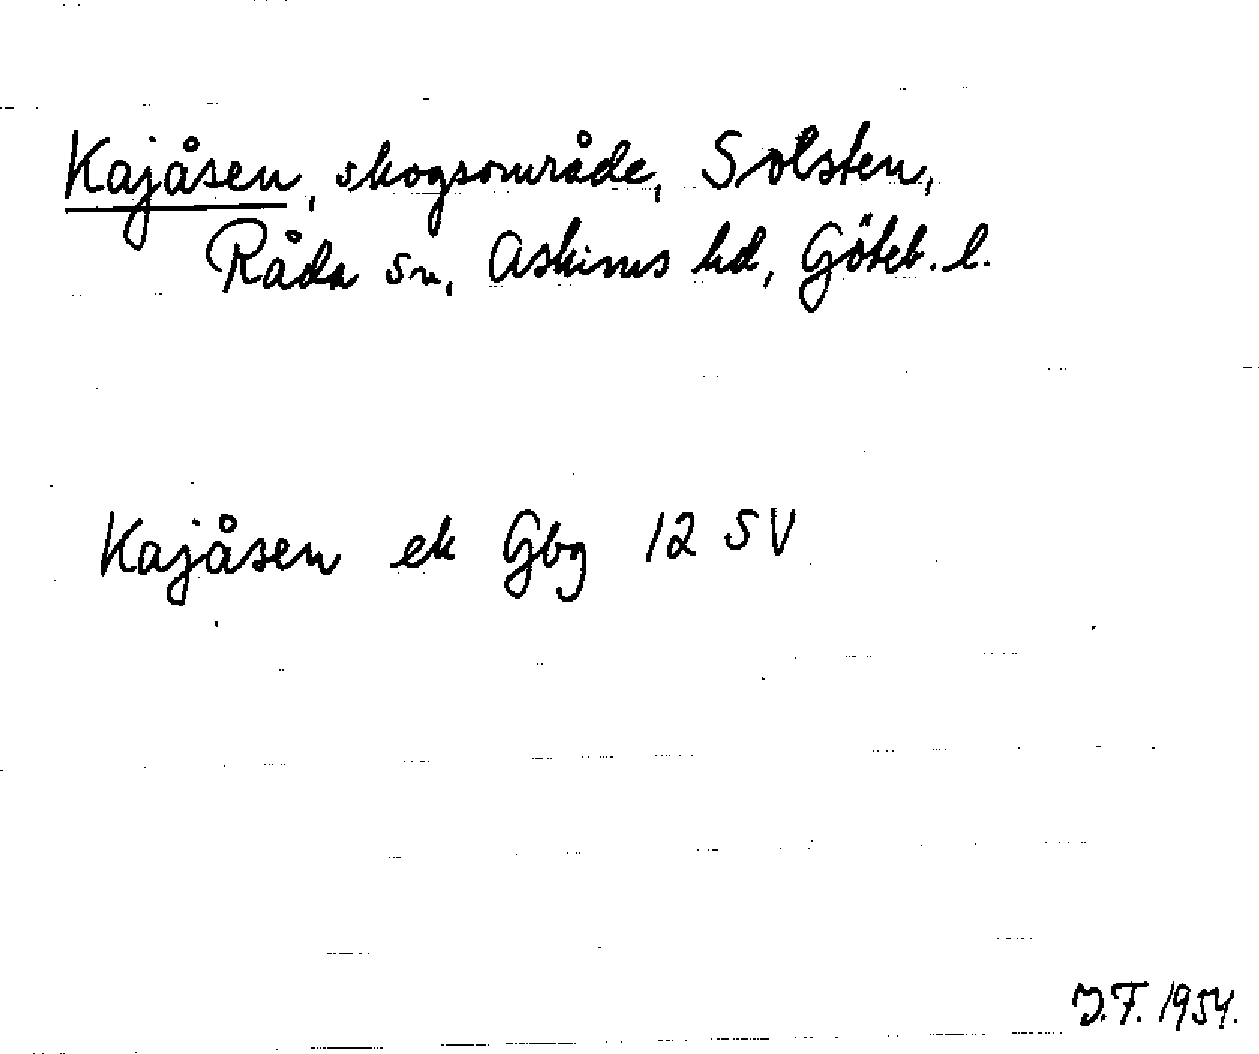 Kajåsen, skogsområde, Solsten,
Råda sn, Askims hd, Göteb. l.
Kajåsen ek Gbg 12 SV
J.F. 1954.